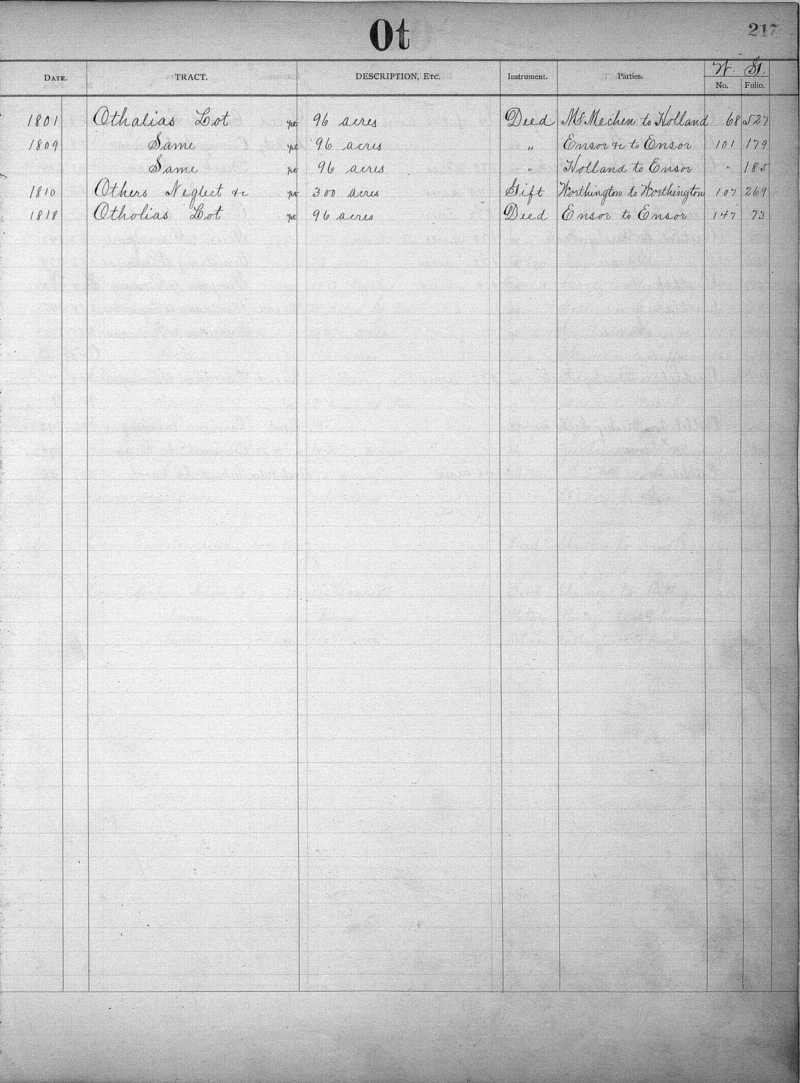 Ot
217
W. G.
DATE. TRACT. DESCRIPTION, ETC. Instrument. Parties. No. Folio.
1801 Othalias Lot pt 96 acres Deed McMechen to Holland 68 527
1809 Same pt 96 acres " Ensor &c to Ensor 101 179
Same pt 96 acres " Holland to Ensor " 185
1810 Others Neglect &c pt 300 acres Gift Worthington to Worthington 107 269
1818 Otholias Lot pt 96 acres Deed Ensor to Ensor 147 73